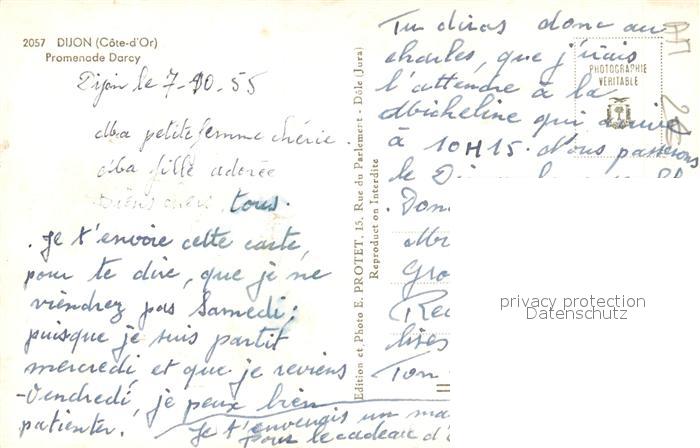 2057 DIJON (Côte-d'Or)
Promenade Darcy
Dijon le 7-10-55
Ma petite femme chérie.
Ma fille adorée
tous.
. Je t'envoie cette carte,
pour te dire, que je ne
viendrez pas Samedi;
puisque je suis partit
mercredi et que je reviens
-Vendredi, je peux bien
patienter. Je t'envenrais un ma
pour le cadeau d'
Edition et Photo E. PROTET, 15, Rue du Parlement - Dôle (Jura)
Reproduction Interdite
Tu diras donc au
charles, que j'irais
l'attendre à la
Micheline qui arrive
à 10H15. Nous passerons
le
. Don
Gro
Rec
bises
Ton
PHOTOGRAPHIE
VERITABLE
privacy protection
Datenschutz